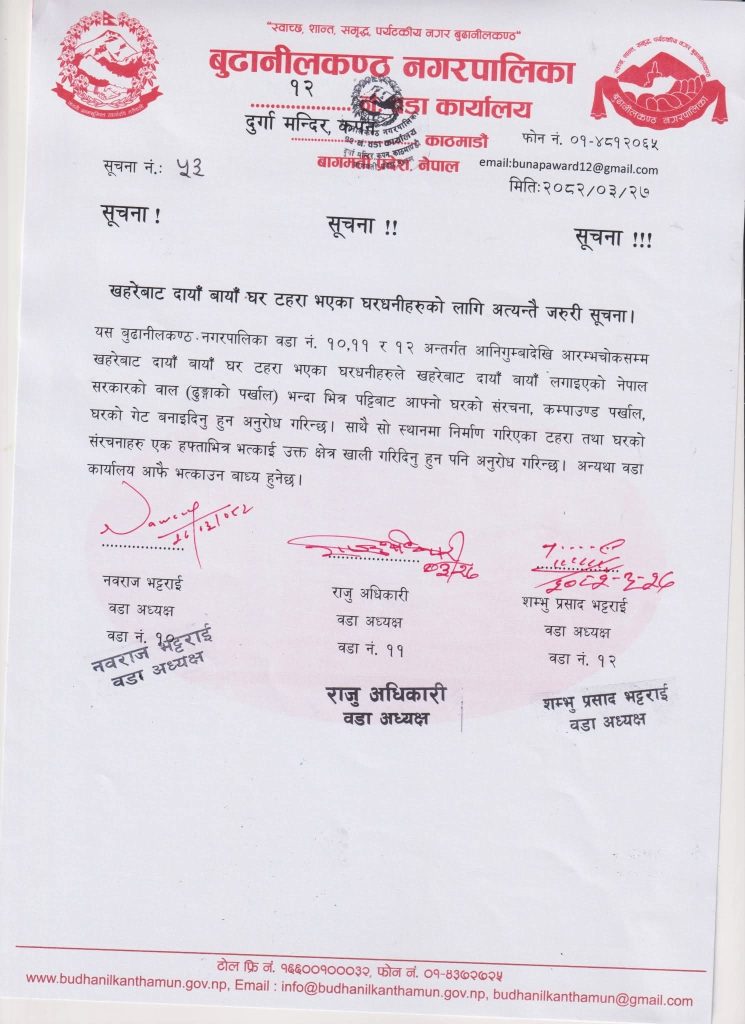 "स्वाच्छ, शान्त, समृद्ध, पर्यटकीय नगर बुढानीलकण्ठ"
बुढानीलकण्ठ नगरपालिका
१२ नं. वडा कार्यालय
दुर्गा मन्दिर, कपन, काठमाडौं
बागमती प्रदेश, नेपाल
फोन नं. ०१-४८१२०६५
email:bunapaward12@gmail.com
सूचना नं.: ५३
मिति:२०८२/०३/२७
सूचना ! सूचना !! सूचना !!!
खहरेबाट दायाँ बायाँ घर टहरा भएका घरधनीहरुको लागि अत्यन्तै जरुरी सूचना।
यस बुढानीलकण्ठ नगरपालिका वडा नं. १०,११ र १२ अन्तर्गत आनिगुम्बादेखि आरम्भचोकसम्म
खहरेबाट दायाँ बायाँ घर टहरा भएका घरधनीहरुले खहरेबाट दायाँ बायाँ लगाइएको नेपाल
सरकारको वाल (ढुङ्गाको पर्खाल) भन्दा भित्र पट्टिबाट आफ्नो घरको संरचना, कम्पाउण्ड पर्खाल,
घरको गेट बनाइदिनु हुन अनुरोध गरिन्छ। साथै सो स्थानमा निर्माण गरिएका टहरा तथा घरको
संरचनाहरु एक हप्ताभित्र भत्काई उक्त क्षेत्र खाली गरिदिनु हुन पनि अनुरोध गरिन्छ। अन्यथा वडा
कार्यालय आफै भत्काउन बाध्य हुनेछ।
नवराज भट्टराई
वडा अध्यक्ष
वडा नं. १०
नवराज भट्टराई
वडा अध्यक्ष
राजु अधिकारी
वडा अध्यक्ष
वडा नं. ११
राजु अधिकारी
वडा अध्यक्ष
२०८२-३-२६
शम्भु प्रसाद भट्टराई
वडा अध्यक्ष
वडा नं. १२
शम्भु प्रसाद भट्टराई
वडा अध्यक्ष
टोल फ्रि नं. १६६००१०००३२, फोन नं. ०१-४३७२७२५
www.budhanilkanthamun.gov.np, Email : info@budhanilkanthamun.gov.np, budhanilkanthamun@gmail.com